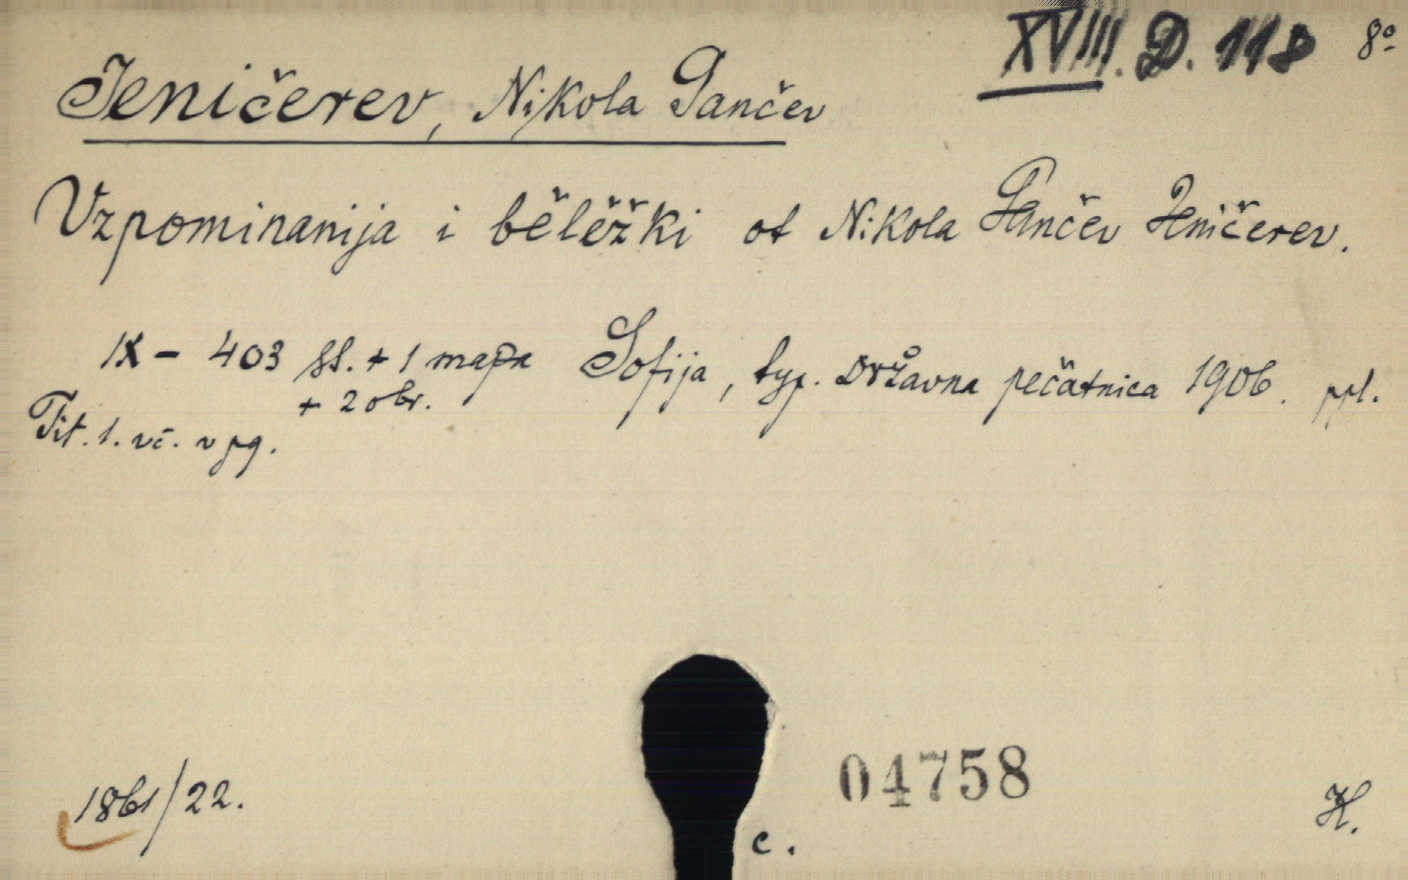 XVIII. D. 118 8º
Jeničerev, Nikola Pančev
Vzpominanija i bělěžki ot Nikola Pančev Jeničerev.
IX - 403 st. + 1 mapa Sofija, typ. Državna pečatnica 1906. ppl.
+ 2 obr.
Tit. l. vč. v pg.
04758
1861/22.
H.
c.